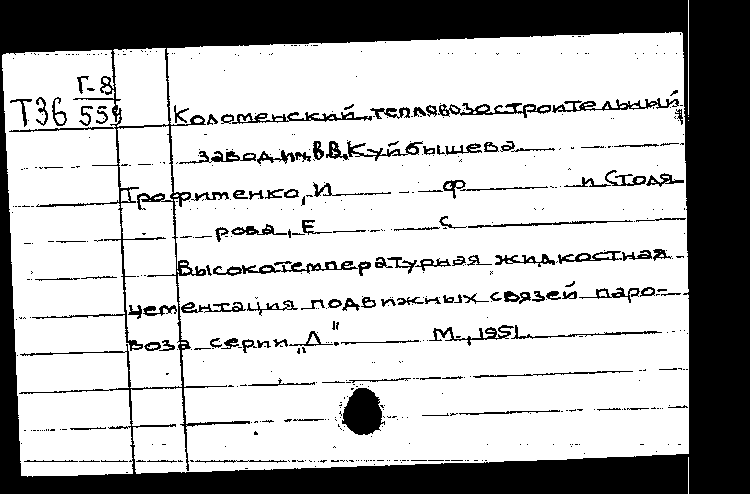 Г-8
Т36 559
Коломенский тепловозостроительный
завод им. В.В. Куйбышева
Трофименко, И Ф и Столя
рова, Е С
Высокотемпературная жидкостная
цементация подвижных связей паро-
воза серии „Л". М., 1951.